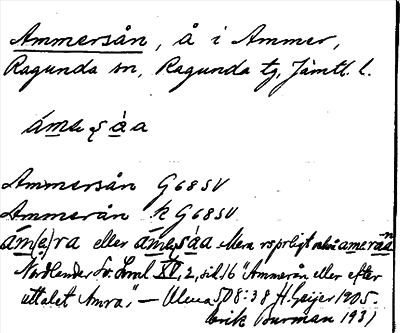 Ammersån, å i Ammer,
Ragunda sn, Ragunda tg, Jämtl. l.
ámeșáa
Ammersån G 68 SV
Ammerån k G 68 SV
ám(e)ra eller ámeșáa Mera rspr ligt ameraan
Nordlander Sv. Lml XV, 2, sid. 16 "Ammerån eller efter
uttalet Amra", — Ulma 508:38 H. Geijer 1905.
Erik Burman 1931